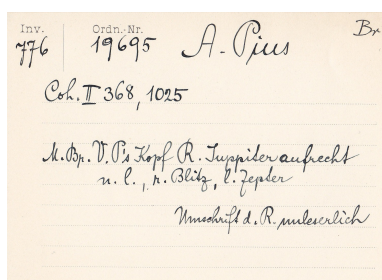 Inv. Ordn.-Nr. Br
776 19695 A. Pius
Coh. II 368, 1025
M. Br. V. P's Kopf R. Juppiter aufrecht
n. l., r. Blitz, l. Zepter
Umschrift d. R. unleserlich